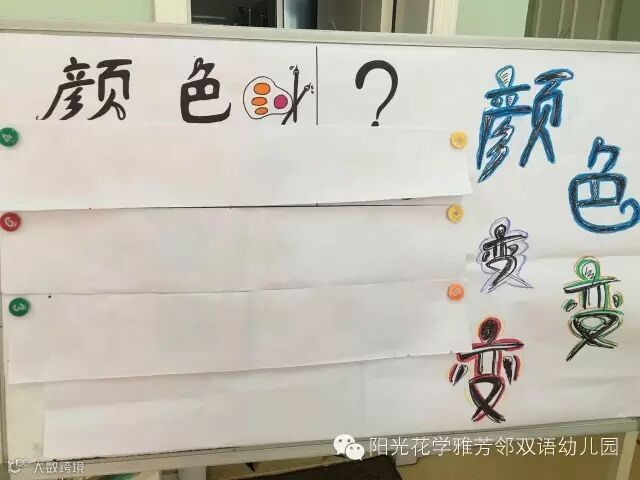 颜色 ?
颜
色
变
变
变
阳光花学雅芳邻双语幼儿园
大数跨境